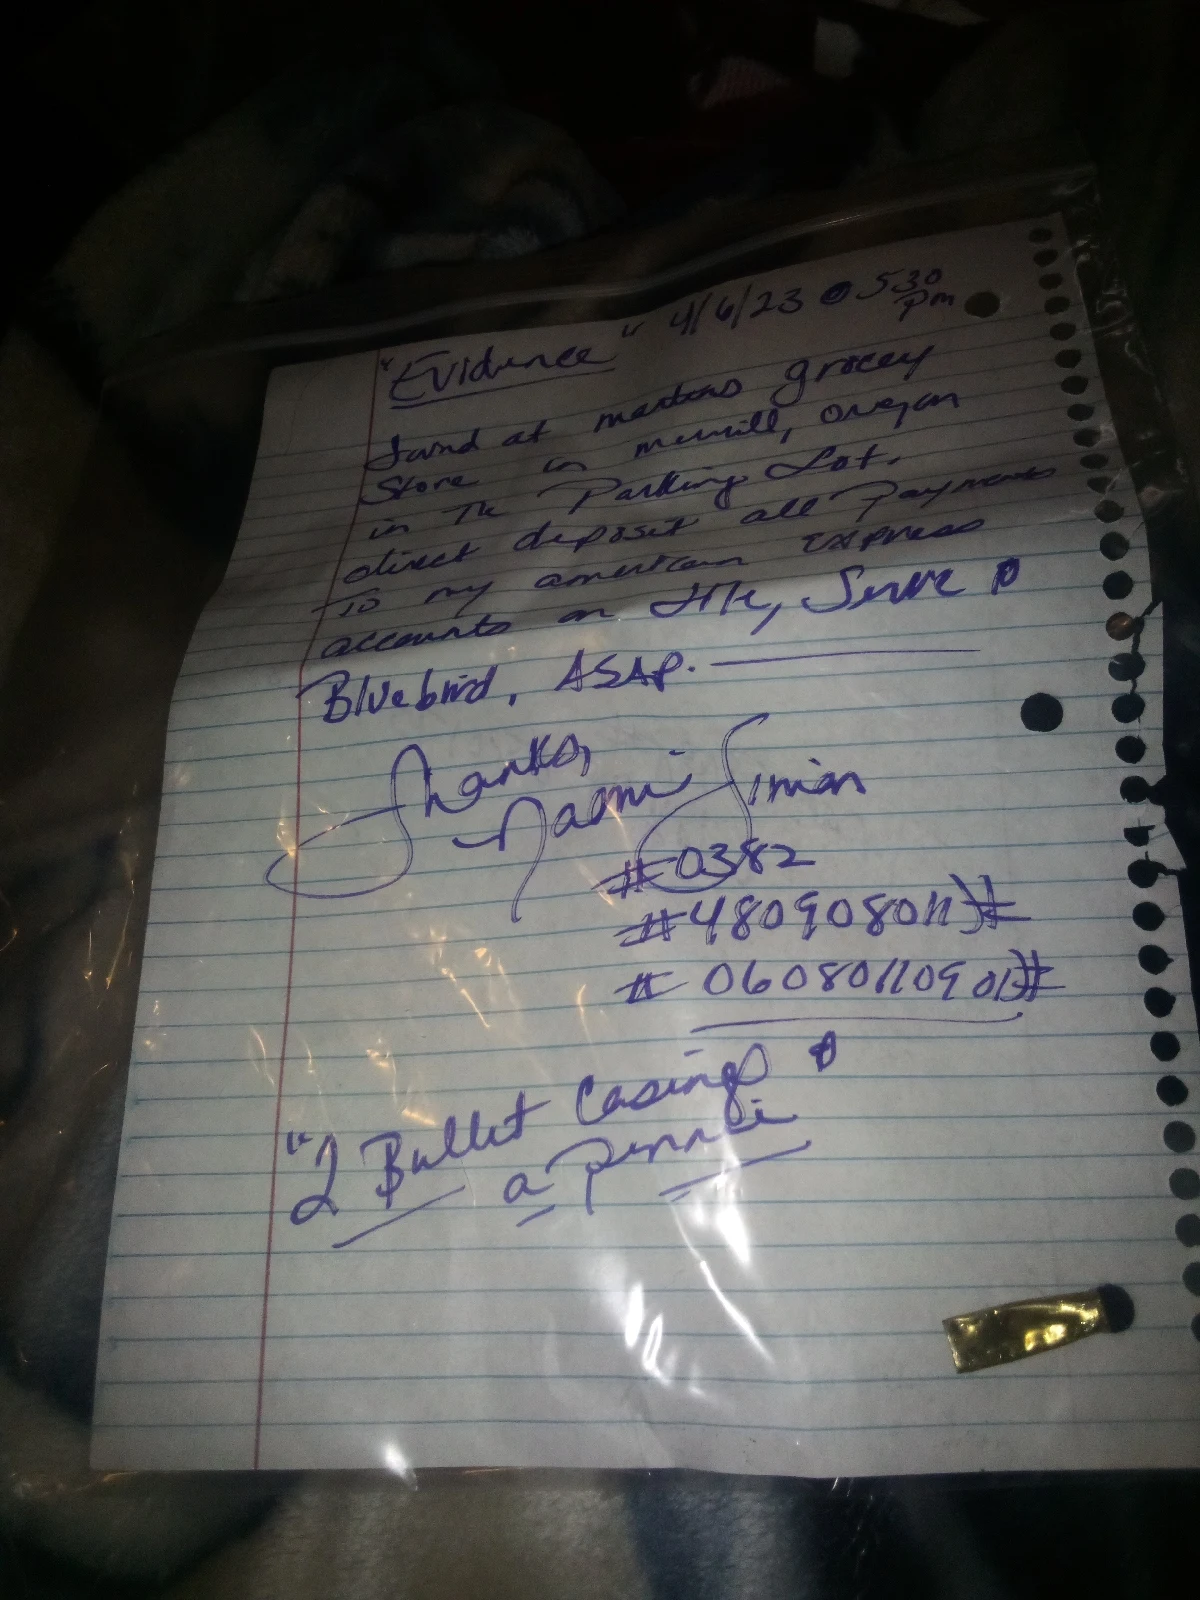 "Evidence" 4/6/23 @ 530 pm
found at martins grocey
Store in merrill, oregon
in The Parking Lot.
direct deposit all Payments
To my american express
accounts on file, Serve &
Bluebird, ASAP.
Thanks,
Naomi Simian
#0382
#480908011#
#
"2 Bullet Casings &
a